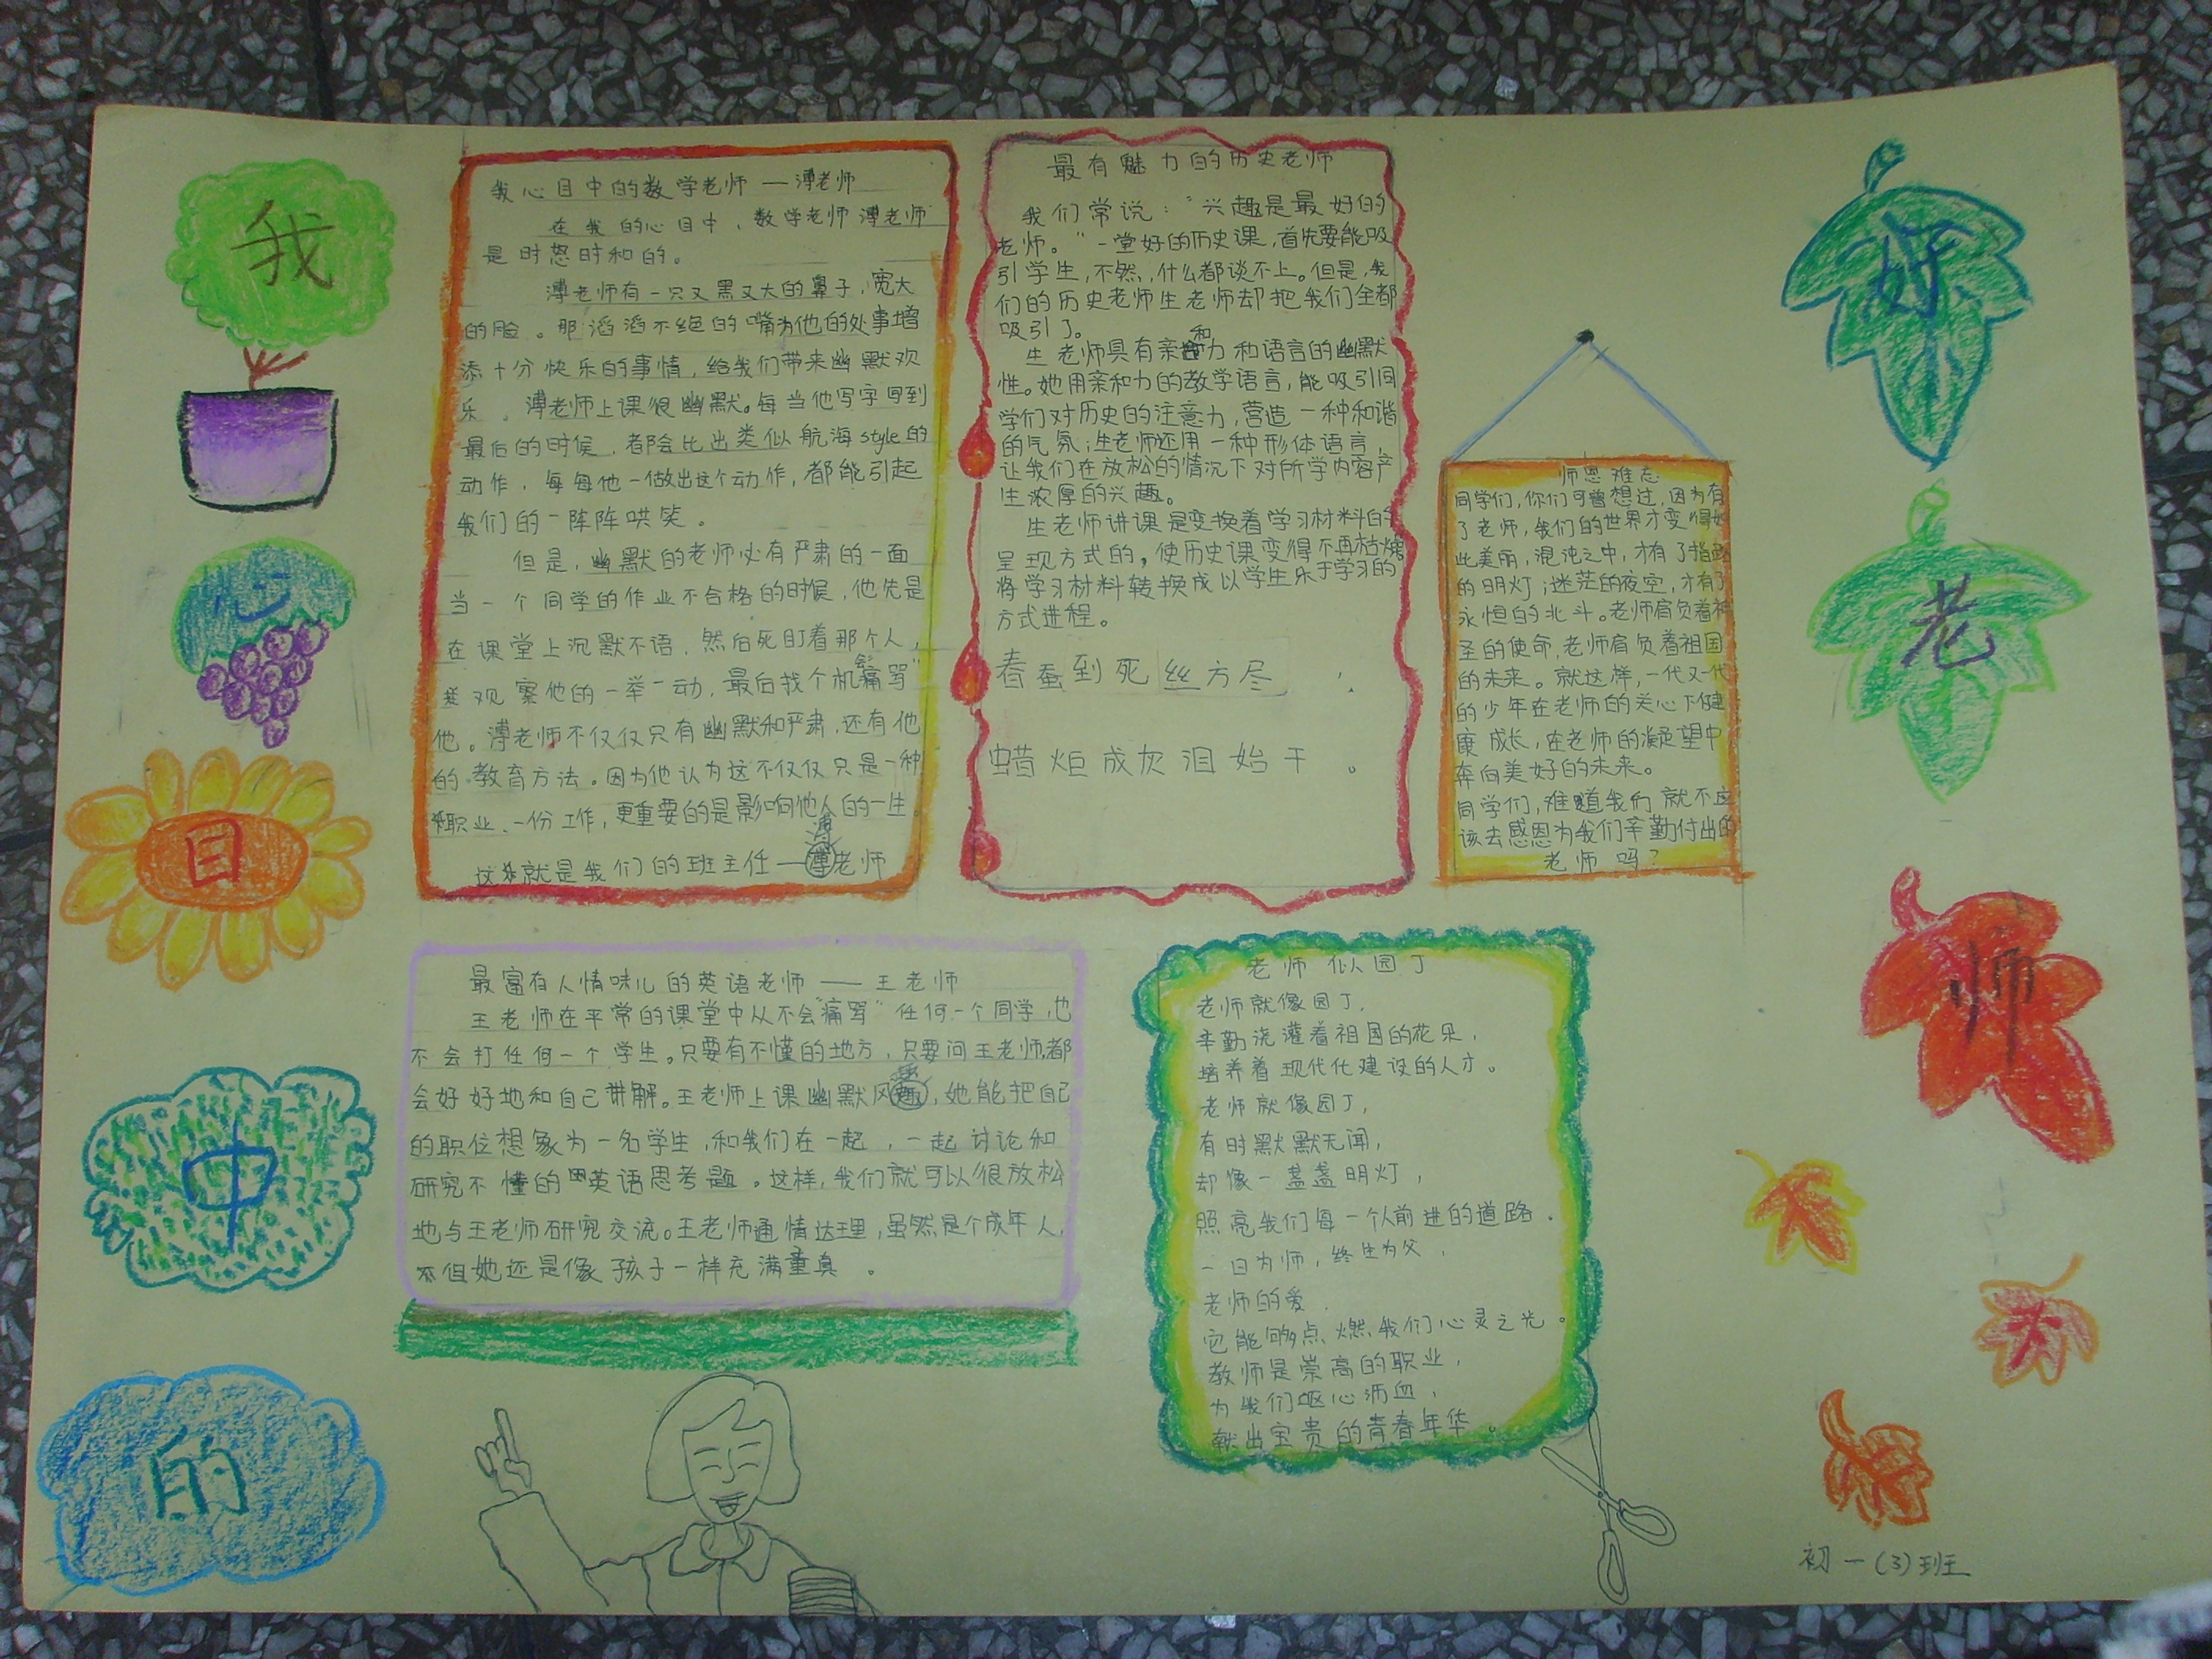 我
心
目
中
的
好
老
师
我心目中的数学老师——溥老师
在我的心目中，数学老师溥老师
是时怒时和的。
溥老师有一只又黑又大的鼻子，宽大
的脸。那滔滔不绝的嘴为他的处事增
添十分快乐的事情，给我们带来幽默欢
乐。溥老师上课很幽默。每当他写字写到
最后的时候，都会比出类似航海style的
动作，每每他一做出这个动作，都能引起
我们的一阵阵哄笑。
但是，幽默的老师必有严肃的一面
当一个同学的作业不合格的时候，他先是
在课堂上沉默不语，然后死盯着那个人，
观察他的一举一动，最后找个机会“痛骂”
他。溥老师不仅仅只有幽默和严肃，还有他
的教育方法。因为他认为这不仅仅只是一种
职业、一份工作，更重要的是影响他人的一生。
这就是我们的班主任——溥老师
最有魅力的历史老师
我们常说：“兴趣是最好的
老师。”一堂好的历史课，首先要能吸
引学生，不然，什么都谈不上。但是，我
们的历史老师生老师却把我们全都
吸引了。
生老师具有亲和力和语言的幽默
性。她用亲和力的教学语言，能吸引同
学们对历史的注意力，营造一种和谐
的气氛；生老师还用一种形体语言，
让我们在放松的情况下对所学内容产
生浓厚的兴趣。
生老师讲课是变换着学习材料的
呈现方式的，使历史课变得不再枯燥
将学习材料转换成以学生乐于学习的
方式进程。
春蚕到死丝方尽，
蜡炬成灰泪始干。
师恩难忘
同学们，你们可曾想过，因为有
了老师，我们的世界才变得如
此美丽，混沌之中，才有了指路
的明灯；迷茫的夜空，才有了
永恒的北斗。老师肩负着神
圣的使命，老师肩负着祖国
的未来。就这样，一代又一代
的少年在老师的关心下健
康成长，在老师的凝望中
奔向美好的未来。
同学们，难道我们就不应
该去感恩为我们辛勤付出的
老师吗？
最富有人情味儿的英语老师——王老师
王老师在平常的课堂中从不会“痛骂”任何一个同学，也
不会打任何一个学生。只要有不懂的地方，只要问王老师，都
会好好地和自己讲解。王老师上课幽默风趣，她能把自己
的职位想象为一名学生，和我们在一起，一起讨论和
研究不懂的英语思考题。这样，我们就可以很放松
地与王老师研究交流。王老师通情达理，虽然是个成年人，
但她还是像孩子一样充满童真。
老师似园丁
老师就像园丁，
辛勤浇灌着祖国的花朵，
培养着现代化建设的人才。
老师就像园丁，
有时默默无闻，
却像一盏盏明灯，
照亮我们每一个人前进的道路．
一日为师，终生为父，
老师的爱．
它能够点燃我们心灵之光。
教师是崇高的职业，
为我们呕心沥血，
献出宝贵的青春年华。
初一（3）班